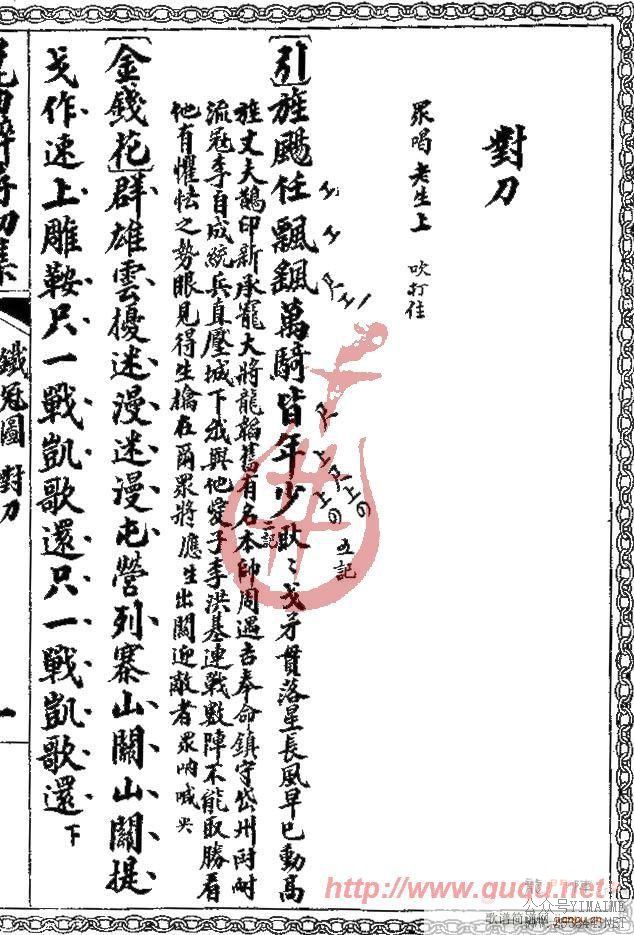 對刀
眾唱老生上 吹打住
[引]旌颺任飄颻萬騎皆年少
戈矛貫落星長風早已動高
旌丈大鵲印新承寵大將龍韜舊有名本帥周遇吉奉命鎮守岱州
流冠李自成統兵直壓城下我與他愛子李洪基連戰數陣不能取勝看
他有懼怯之勢眼見得生擒在爾眾將應生出關迎敵者眾吶喊
[金錢花]群雄雲擾迷漫迷漫屯營列寨山關山關提
戈作速上雕鞍只一戰凱歌還只一戰凱歌還下
鐵冠圖 對刀
一
五記
二記
http://www.ququ.net